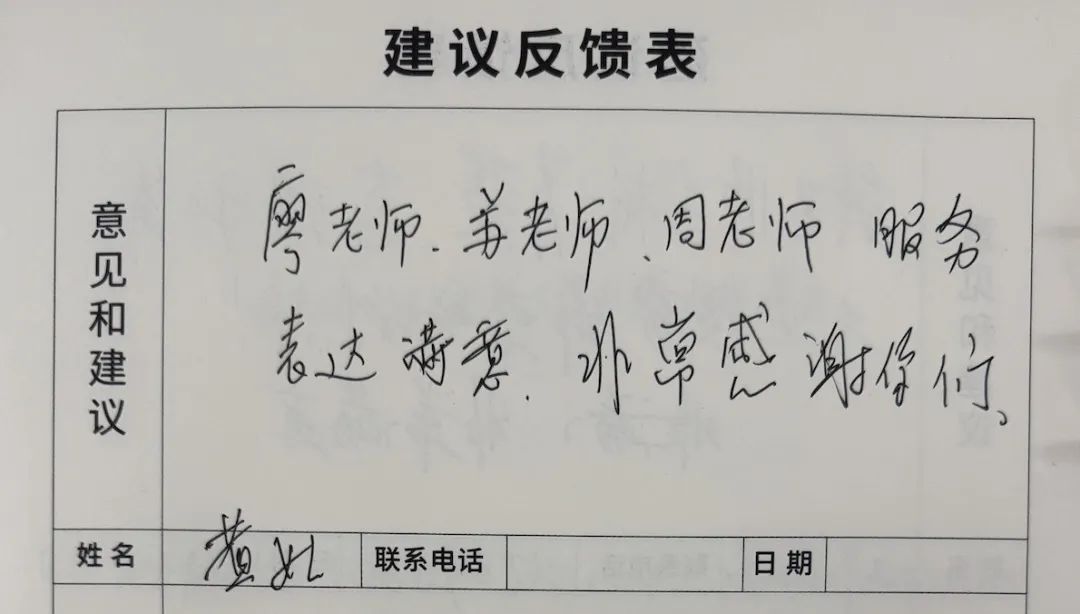 建议反馈表
意见和建议
廖老师、苏老师、周老师 服务
表达满意、非常感谢你们。
姓名
黄
联系电话
日期